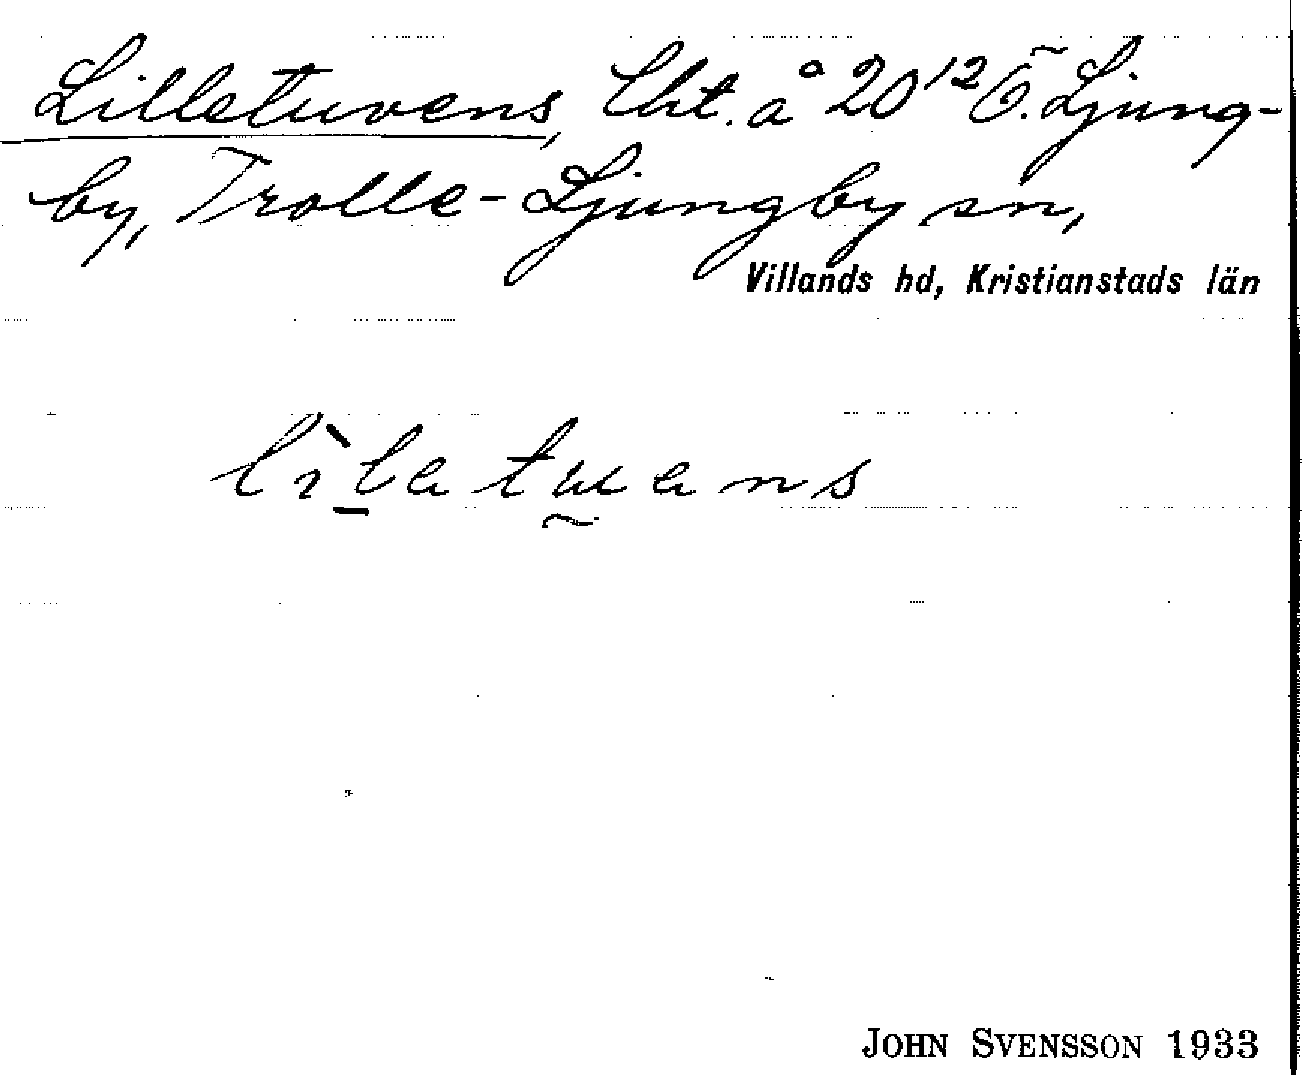 Lilletuvens, lht. å 20¹² Ö. Ljung-
by, Trolle-Ljungby sn,
Villands hd, Kristianstads län
JOHN SVENSSON 1933